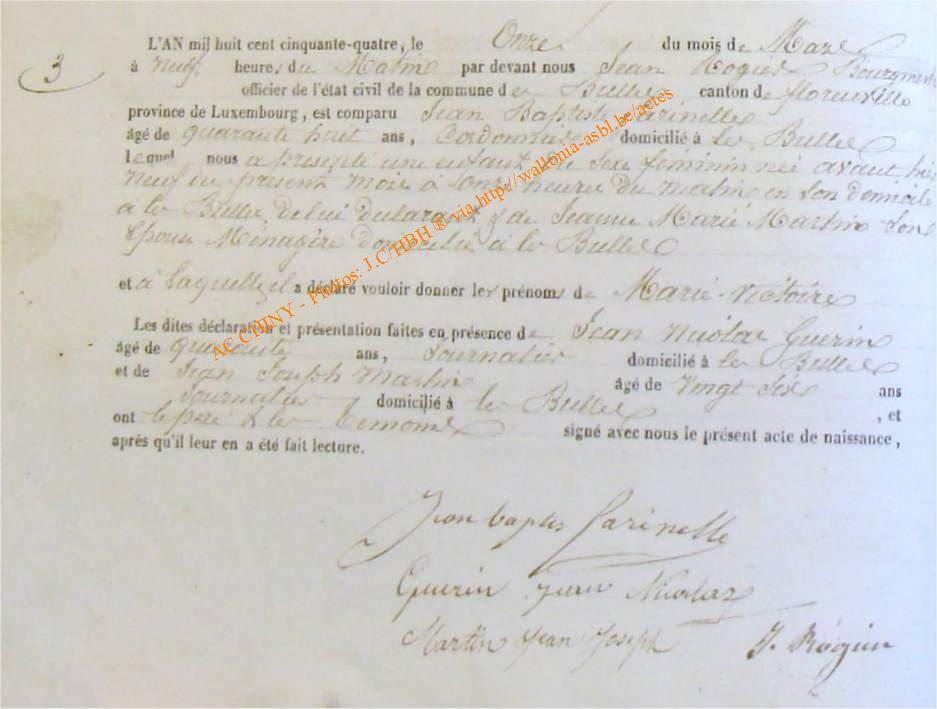 3
L'AN mil huit cent cinquante-quatre, le Onze du mois de Mars
à neuf heures du Matin par devant nous Jean Rogier Bourgmestre
officier de l'état civil de la commune de les Bulles canton de florenville
province de Luxembourg, est comparu Jean Baptiste Farinelle
âgé de quarante huit ans, Cordonnier domicilié à les Bulles
lequel nous a présenté une enfant du sexe feminin née avant hier
neuf du présent mois à onze heure du matin en son domicile
à les Bulles de lui déclarant & de Jeanne Marie Martin Son
Epouse Ménagère domiciliée à les Bulles
et à laquelle il a déclaré vouloir donner les prénoms de Marie-Victoire
Les dites déclaration et présentation faites en présence de Jean Nicolas Guerin
âgé de quarante ans, Journalier domicilié à les Bulles
et de Jean Joseph Martin âgé de Vingt Six ans
Journalier domicilié à les Bulles, et
ont le père & les témoins signé avec nous le présent acte de naissance,
après qu'il leur en a été fait lecture.
Jean baptis farinelle
Guerin Jean Nicolas
Martin Jean Joseph J. Rogier
AC CHINY - Photos: J.C/HBH ® via http://wallonia-asbl.be/actes